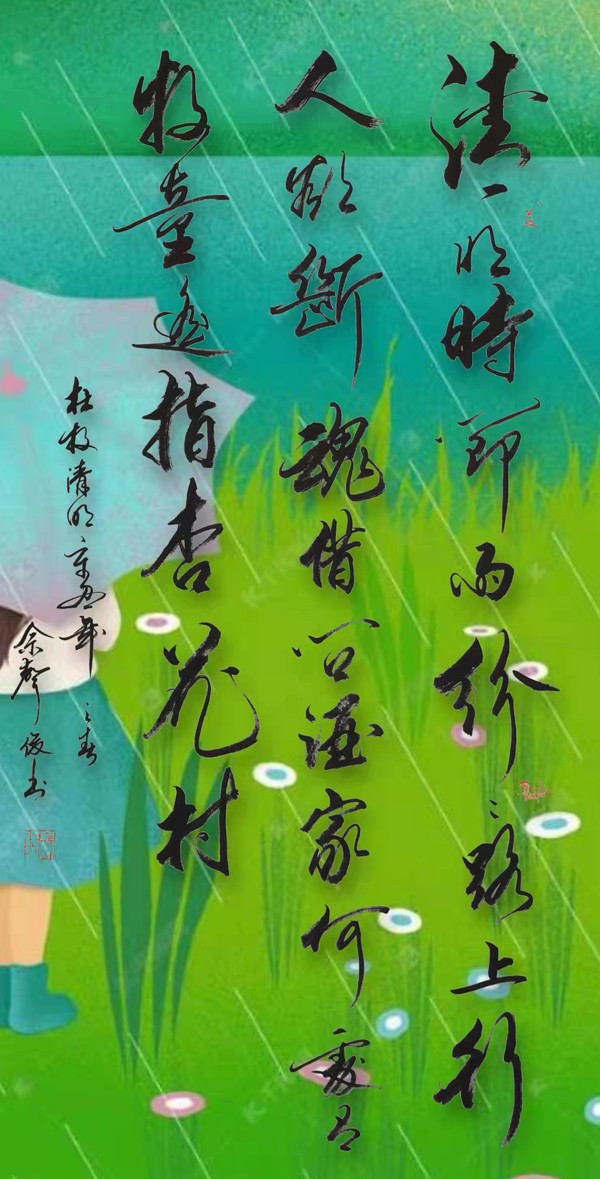 清明時節雨紛々路上行
人欲斷魂借問酒家何處有
牧童遙指杏花村
杜牧清明 年之春
余 俊书